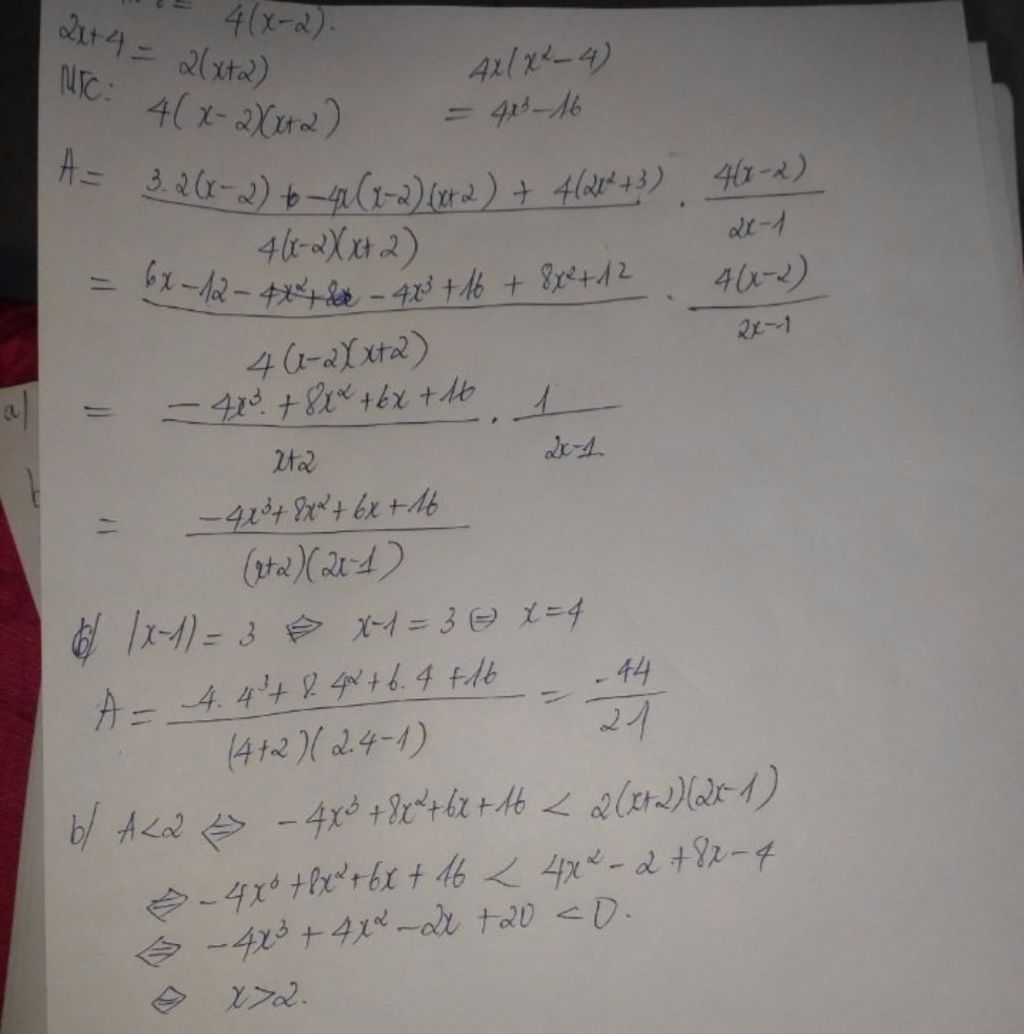 = 4(x-2).
2x+4 = 2(x+2)
4x(x²-4)
MTC: 4(x-2)(x+2)
= 4x³-16
A = (3.2(x-2) -4x(x-2)(x+2) + 4(2x²+3))/(4(x-2)(x+2)) . (4(x-2))/(2x-1)
= (6x-12 - 4x³+16 + 8x²+12)/(4(x-2)(x+2)) . (4(x-2))/(2x-1)
a)
= (-4x³. +8x²+6x+16)/(x+2) . 1/(2x-1)
b
= (-4x³+8x²+6x+16)/((x+2)(2x-1))
|x-1| = 3 ⇔ x-1 = 3 ⇔ x=4
A = (-4.4³+8.4²+6.4+16)/((4+2)(2.4-1)) = -44/21
b/ A<2 ⇔ -4x³+8x²+6x+16 < 2(x+2)(2x-1)
⇔ -4x³+8x²+6x+16 < 4x²-2+8x-4
⇔ -4x³+4x²-2x+20 <0.
⇔ x>2.